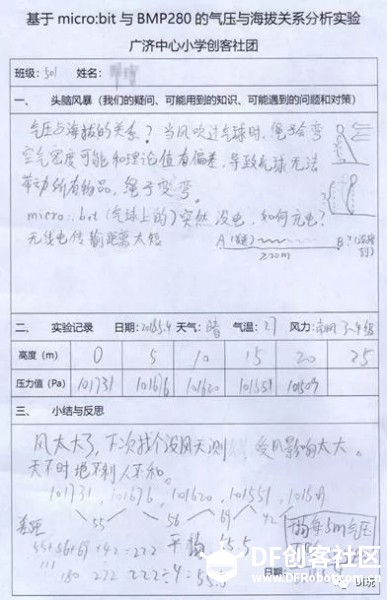 基于 micro:bit 与 BMP280 的气压与海拔关系分析实验
广济中心小学创客社团
班级: 501 姓名:
一、 头脑风暴（我们的疑问、可能用到的知识、可能遇到的问题和对策）
气压与海拔的关系？当风吹过气球时，绳子会弯
空气密度可能和理论值有偏差，导致气球无法
带动所有物品，绳子变弯。
micro:bit (气球上的) 突然没电，如何充电？
无线电传输距离太短
A B?
222m
二、 实验记录 日期: 2018.5.4 天气: 晴 气温: 27 风力: 南风 3~4级
高度（m） 0 5 10 15 20 25
压力值（Pa） 101731 101676 101620 101551 101509
三、 小结与反思
风太大了，下次找个没风天测 受风影响太大。
天不时地不利人不和。
101731, 101676, 101620, 101551, 101509
55 56 69 42
差距
55+56+69+42=222 平均 55.5
111 180 222 222÷4=55.5
每5m气压
日期:
DF创客社区
www.DFRobot.com.cn
DF玩